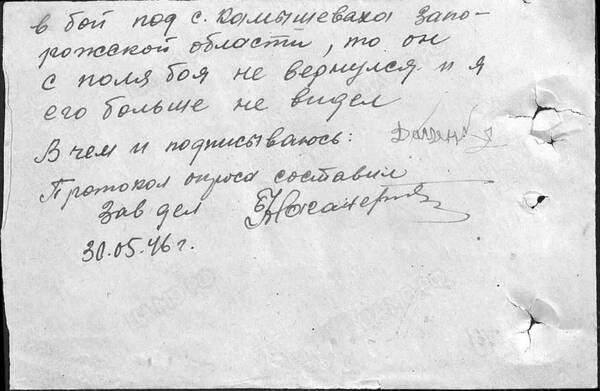 в бой под с. Камышеваха Запо-
рожской области, то он
с поля боя не вернулся и я
его больше не видел
В чем и подписываюсь:
Протокол опроса составил
Зав дел
30.05.46 г.